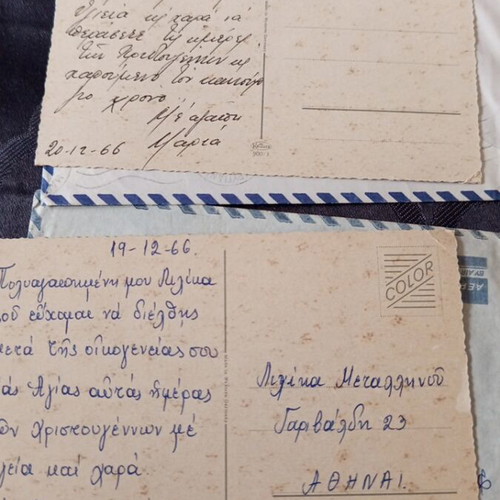 ὑγεία κι χαρά νά
περάσετε τίς ἡμέρες
τῶν Χριστουγέννων κι
χαρούμενο τόν καινούριο
χρόνο
Μέ ἀγάπη
20-12-66 Μαρία
19-12-66.
Πολυαγαπημένη μου Λιλίκα
σοῦ εὔχομαι νά διέλθης
μετά τῆς οἰκογενείας σου
τάς Ἁγίας αὐτάς ἡμέρας
τῶν Χριστουγέννων μέ
ὑγεία καί χαρά
COLOR
Λιλίκα Μεταλληνοῦ
Γαριβάλδη 23
ΑΘΗΝΑΙ.